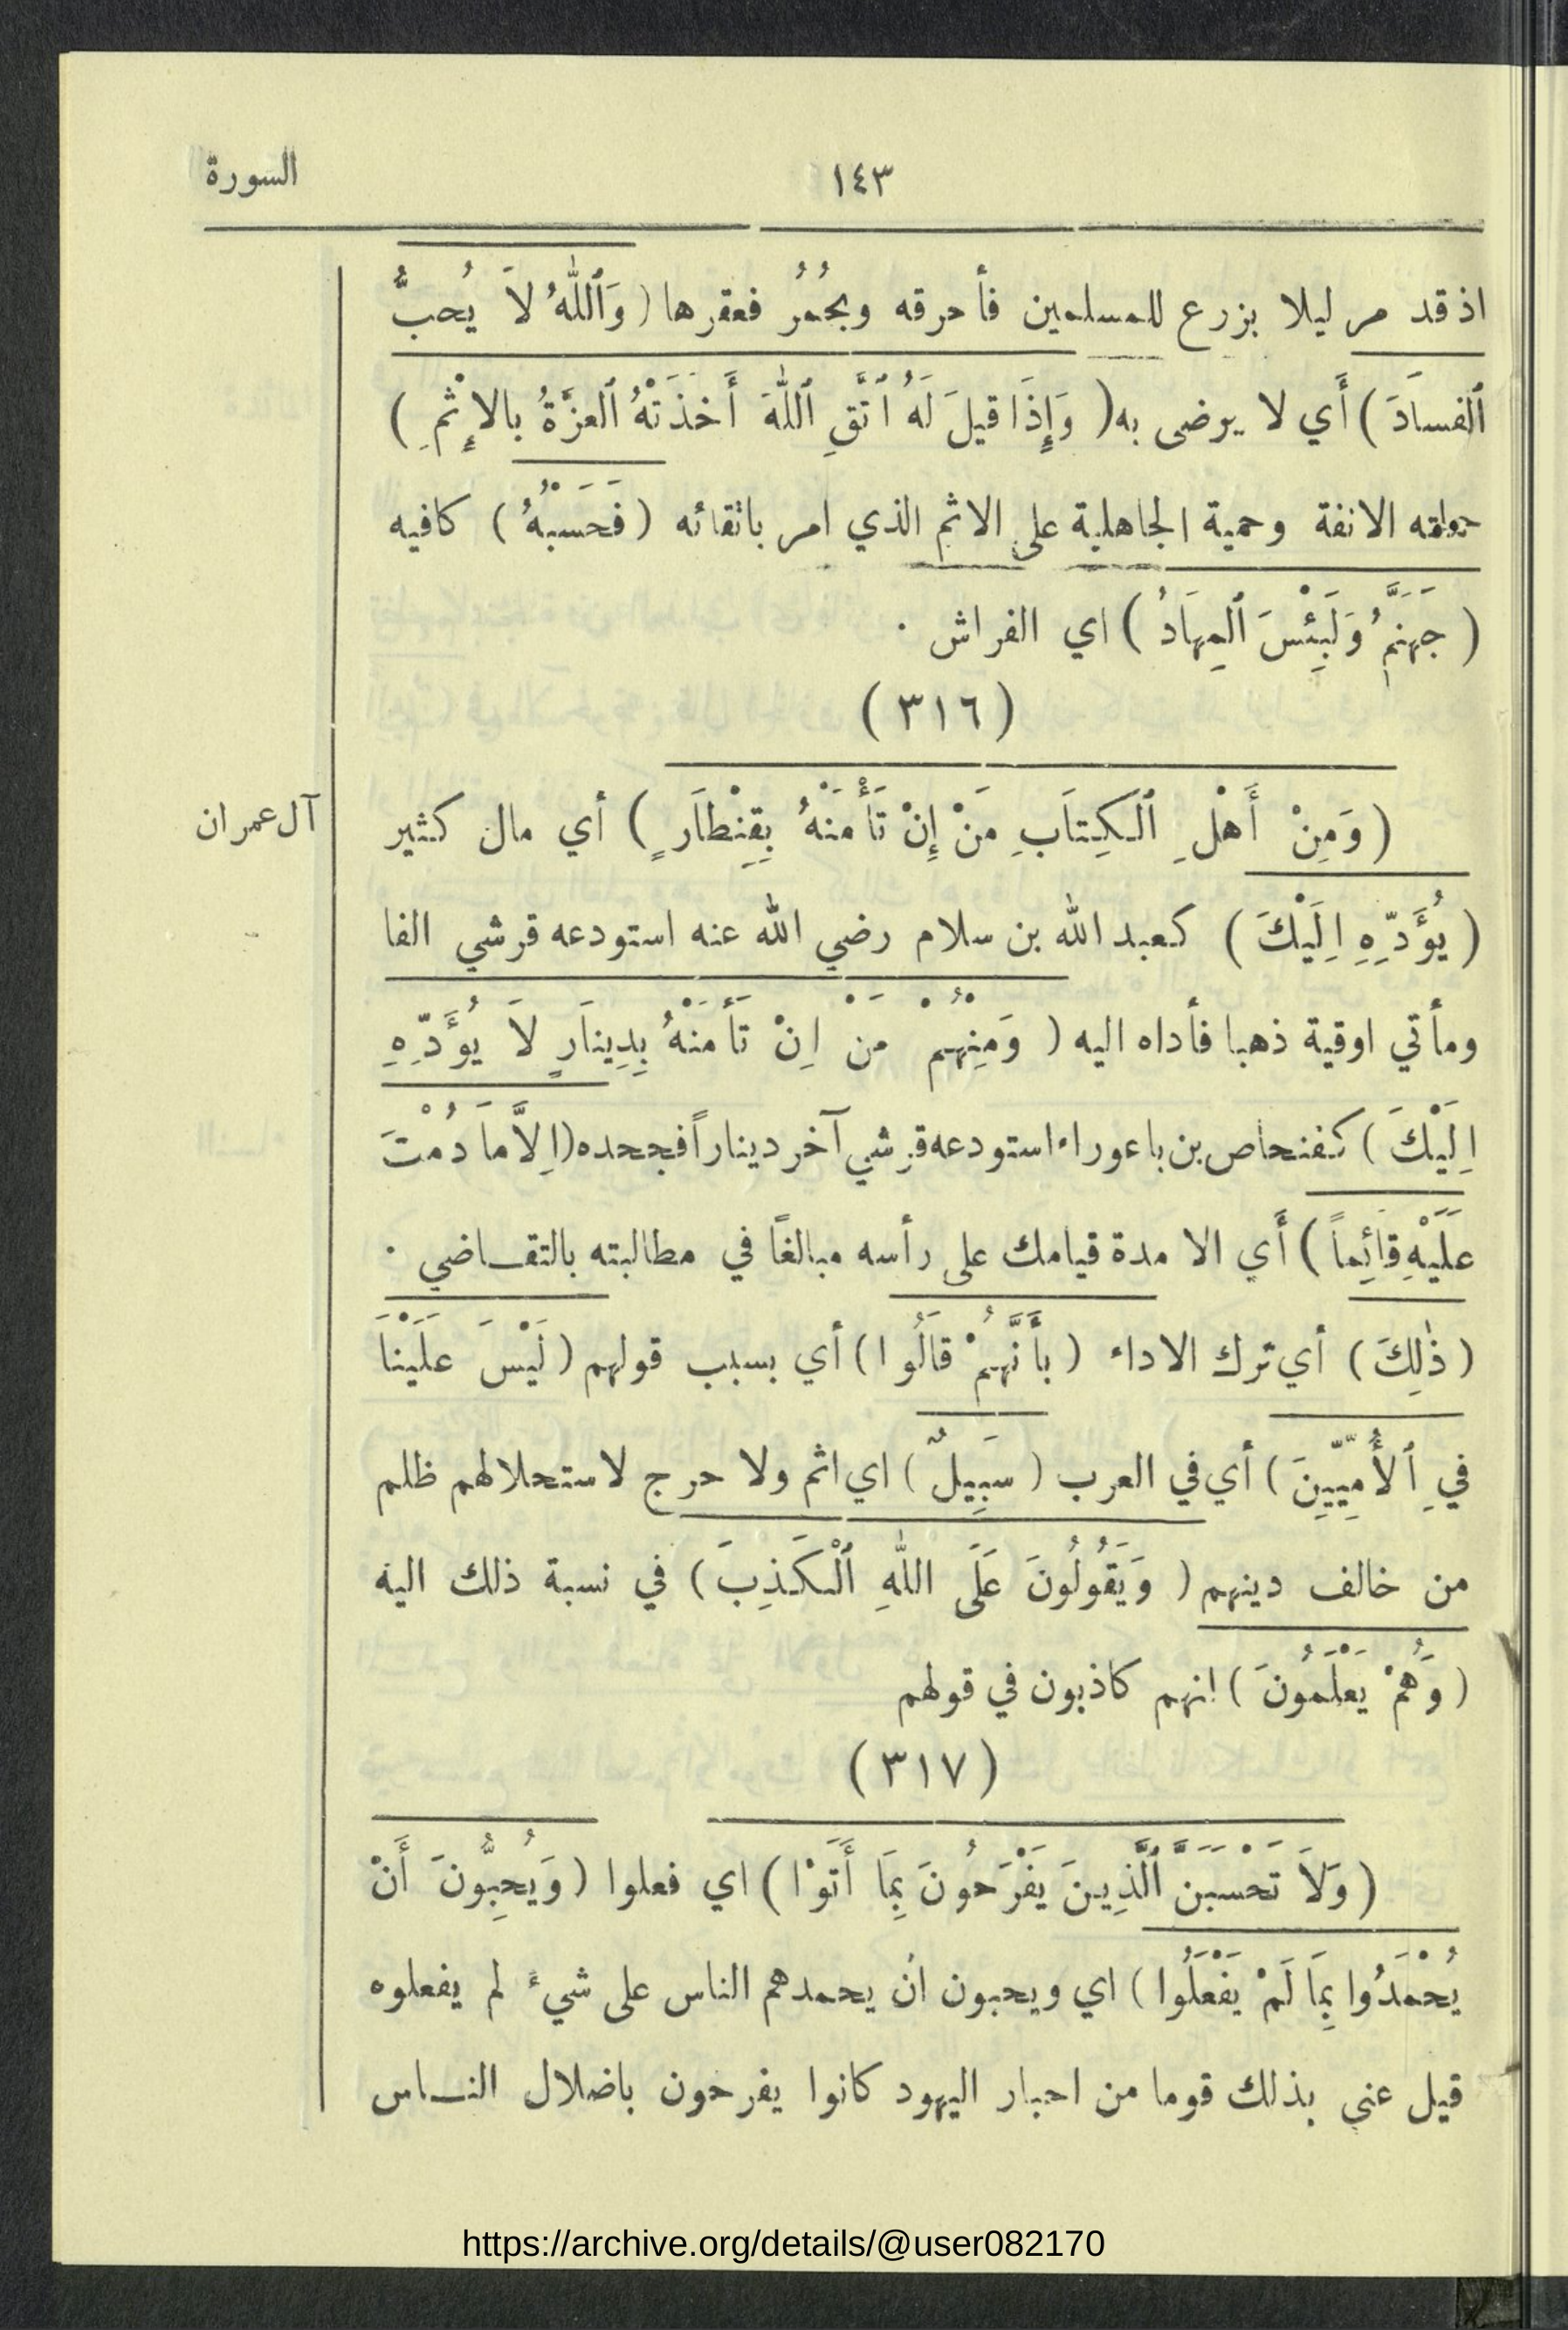 السورة
١٤٣
اذ قد مر ليلا بزرع للمسلمين فأحرقه وبحُمُر فعقرها ( وَٱللّٰهُ لاَ يُحبُّ
ٱلفسادَ ) أَي لا يرضى به ( وَإِذَا قيلَ لَهُ ٱتَّقِ ٱللّٰهَ أَخذَتْهُ ٱلعزَّةُ بالإِثْمِ )
حملته الانفة وحمية الجاهلية على الاثم الذي امر باتقائه ( فَحَسَبْهُ ) كافيه
( جَهَنَّمُ وَلَبِئْسَ ٱلمِهَادُ ) اي الفراش .
( ٣١٦ )
آل عمران
( وَمِنْ أَهْلِ ٱلكِتاَبِ مَنْ إِنْ تَأْمَنْهُ بِقِنْطاَرٍ ) أي مال كثير
( يُؤَدِّهِ اِلَيْكَ ) كعبد الله بن سلام رضي الله عنه استودعه قرشي الفا
ومأتي اوقية ذهبا فأداه اليه ( وَمِنْهُمْ مَنْ اِنْ تَأمَنْهُ بِدِينارٍ لاَ يُؤَدِّهِ
اِلَيْكَ ) كفنحاص بن باعوراء استودعه قرشي آخر ديناراً فجحده ( اِلاَّ ماَ دُمْتَ
عَلَيْهِ قائِماً ) أَي الا مدة قيامك على رأسه مبالغاً في مطالبته بالتقـاضي .
( ذٰلِكَ ) أي ترك الاداء ( بأَنَّهُمْ قاَلُوا ) أي بسبب قولهم ( لَيْسَ عَلَيْناَ
فيِ ٱلأُمِيِّينَ ) أي في العرب ( سَبِيلٌ ) اي اثم ولا حرج لاستحلالهم ظلم
من خالف دينهم ( وَيَقُولُونَ عَلَى اللّٰهِ ٱلْكَذِبَ ) في نسبة ذلك اليه
( وَهُمْ يَعْلَمُونَ ) انهم كاذبون في قولهم
( ٣١٧ )
( وَلاَ تَحْسَبَنَّ ٱلَّذِينَ يَفْرَحُونَ بِمَا أَتَوْا ) اي فعلوا ( وَيُحِبُّونَ أَنْ
يُحْمَدُوا بِمَا لَمْ يَفْعَلُوا ) اي ويحبون ان يحمدهم الناس على شيءً لم يفعلوه
قيل عني بذلك قوما من احبار اليهود كانوا يفرحون باضلال النـاس
https://archive.org/details/@user082170